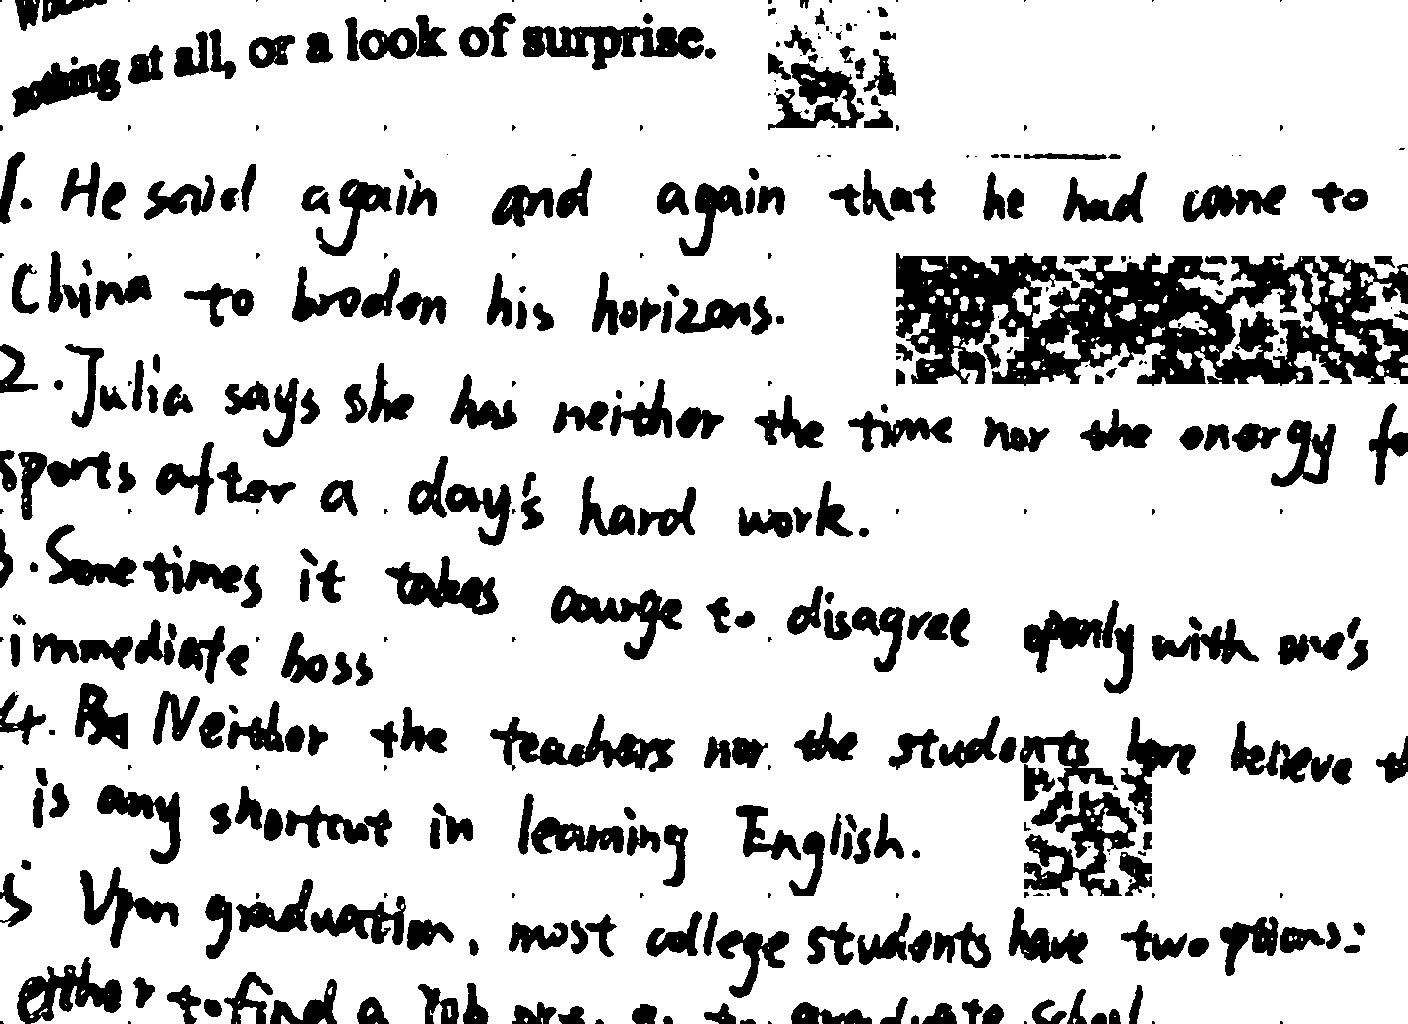 nothing at all, or a look of surprise.
1. He said again and again that he had come to
China to broden his horizons.
2. Julia says she has neither the time nor the energy fo
sports after a day's hard work.
3. Sometimes it takes courge to disagree openly with one's
immediate boss
4. Neither the teachers nor the students here believe th
is any shortcut in learning English.
5 Upon graduation, most college students have two options:
either to find a job or to graduate school